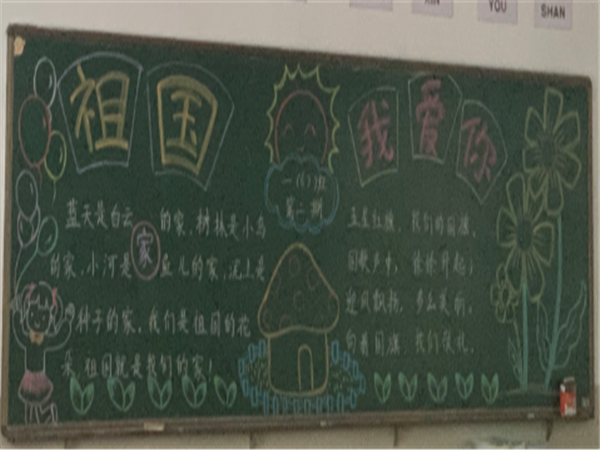 YOU
SHAN
祖国 我爱你
一( )班
第二期
蓝天是白云 的家,树林是小鸟
家
的家,小河是 鱼儿的家,泥土是
种子的家,我们是祖国的花
朵,祖国就是我们的家!
五星红旗,我们的国旗,
国歌声中,徐徐升起;
迎风飘扬,多么美丽,
向着国旗,我们敬礼。